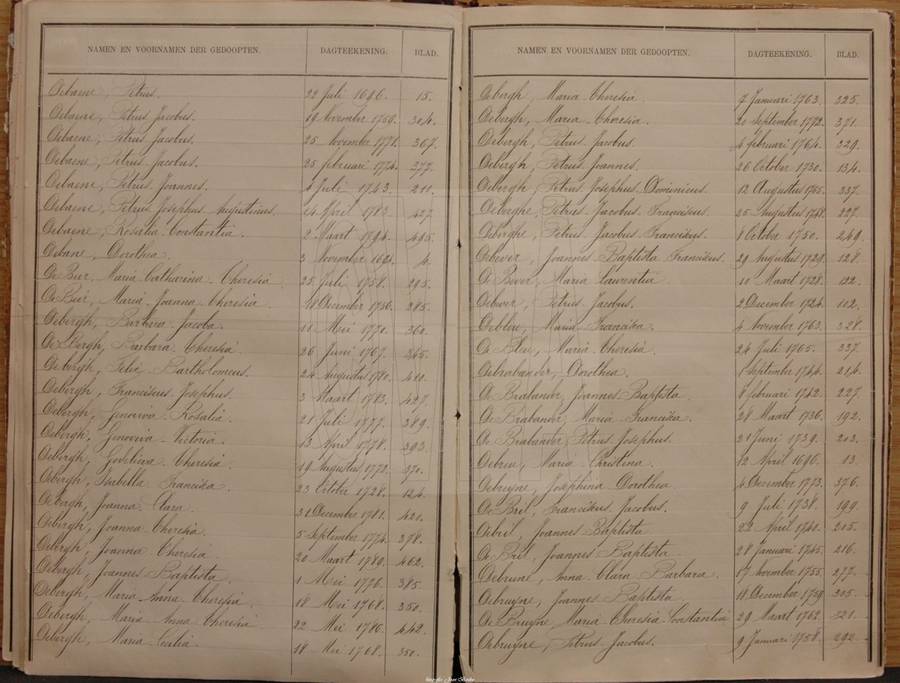 NAMEN EN VOORNAMEN DER GEDOOPTEN. DAGTEEKENING. BLAD.
Debaene, Petrus. 22 Juli 1696. 15.
Debaene, Petrus Jacobus. 19 November 1760. 304.
Debaene, Petrus Jacobus. 25 November 1771. 367.
Debaene, Petrus Jacobus. 25 februari 1774. 377.
Debaene, Petrus Joannes. Juli 1743. 210.
Debaene, Petrus Josephus Augustinus. 24 April 1783. 427.
Debaene, Rosalia Constantia. 2 Maart 1794. 495.
Debane, Dorothea. 3 November 4.
De Bier, Maria Catharina Theresia. 25 Juli 1758. 295.
De Bier, Maria Joanna Theresia. 18 December 1756. 285.
Debergh, Barbara Jacoba. 11 Mei 1770. 360.
De Bergh, Barbara Theresia. 26 Juni 1767. 345.
Debergh, Felix Bartholomeus. 24 Augustus 1780. 410.
Debergh, Franciscus Josephus. 3 Maart 1783. 427.
Debergh, Genoveva Rosalia. 21 Juli 1777. 389.
Debergh, Genoveva Victoria. 13 April 1778. 393.
Debergh, Godeliева Theresia. 19 Augustus 1772. 370.
Debergh, Isabella Francisca. 23 October 1728. 124.
Debergh, Joanna Clara. 31 December 1781. 421.
Debergh, Joanna Theresia. 5 September 1774. 378.
Debergh, Joanna Theresia. 20 Maart 1789. 462.
Debergh, Joannes Baptista. 1 Mei 1776. 385.
Debergh, Maria Anna Theresia. 18 Mei 1768. 350.
Debergh, Maria Anna Theresia. 22 Mei 1786. 442.
Debergh, Maria Cecilia. 18 Mei 1768. 350.
NAMEN EN VOORNAMEN DER GEDOOPTEN. DAGTEEKENING. BLAD.
Debergh, Maria Theresia. 7 Januari 1763. 325.
Debergh, Maria Theresia. 20 September 1772. 371.
Debergh, Petrus Jacobus. 4 februari 1764. 329.
Debergh, Petrus Joannes. 26 October 1730. 134.
Debergh, Petrus Josephus Dominicus. 12 Augustus 1765. 337.
Deberghe, Petrus Jacobus Franciscus. 25 Augustus 1748. 227.
Deberghe, Petrus Jacobus Franciscus. 1 October 1750. 240.
Debever, Joannes Baptista Franciscus. 29 Augustus 1729. 128.
De Bever, Maria Laurentia. 10 Maart 1728. 122.
Debever, Petrus Jacobus. 2 December 1724. 102.
Debleu, Maria Francisca. 4 November 1763. 328.
De Bleu, Maria Theresia. 24 Juli 1765. 337.
Debrabander, Dorothea. 1 September 1744. 214.
De Brabander, Joannes Baptista. 8 februari 1742. 227.
De Brabander, Maria Francisca. 28 Maart 1736. 192.
De Brabander, Petrus Josephus. 21 Juni 1739. 203.
Debreu, Maria Christina. 12 April 1696. 13.
Debruyne, Josephina Dorothea. 4 December 1773. 376.
De Bril, Franciscus Jacobus. 9 Juli 1738. 199.
Debril, Joannes Baptista. 22 April 1740. 205.
De Bril, Joannes Baptista. 28 Januari 1745. 216.
Debrune, Anna Clara Barbara. 17 November 1755. 277.
Debruyne, Joannes Baptista. 18 December 1759. 305.
De Bruyne, Maria Theresia Constantia. 29 Maart 1762. 321.
Debruyne, Petrus Jacobus. 9 Januari 1758. 292.